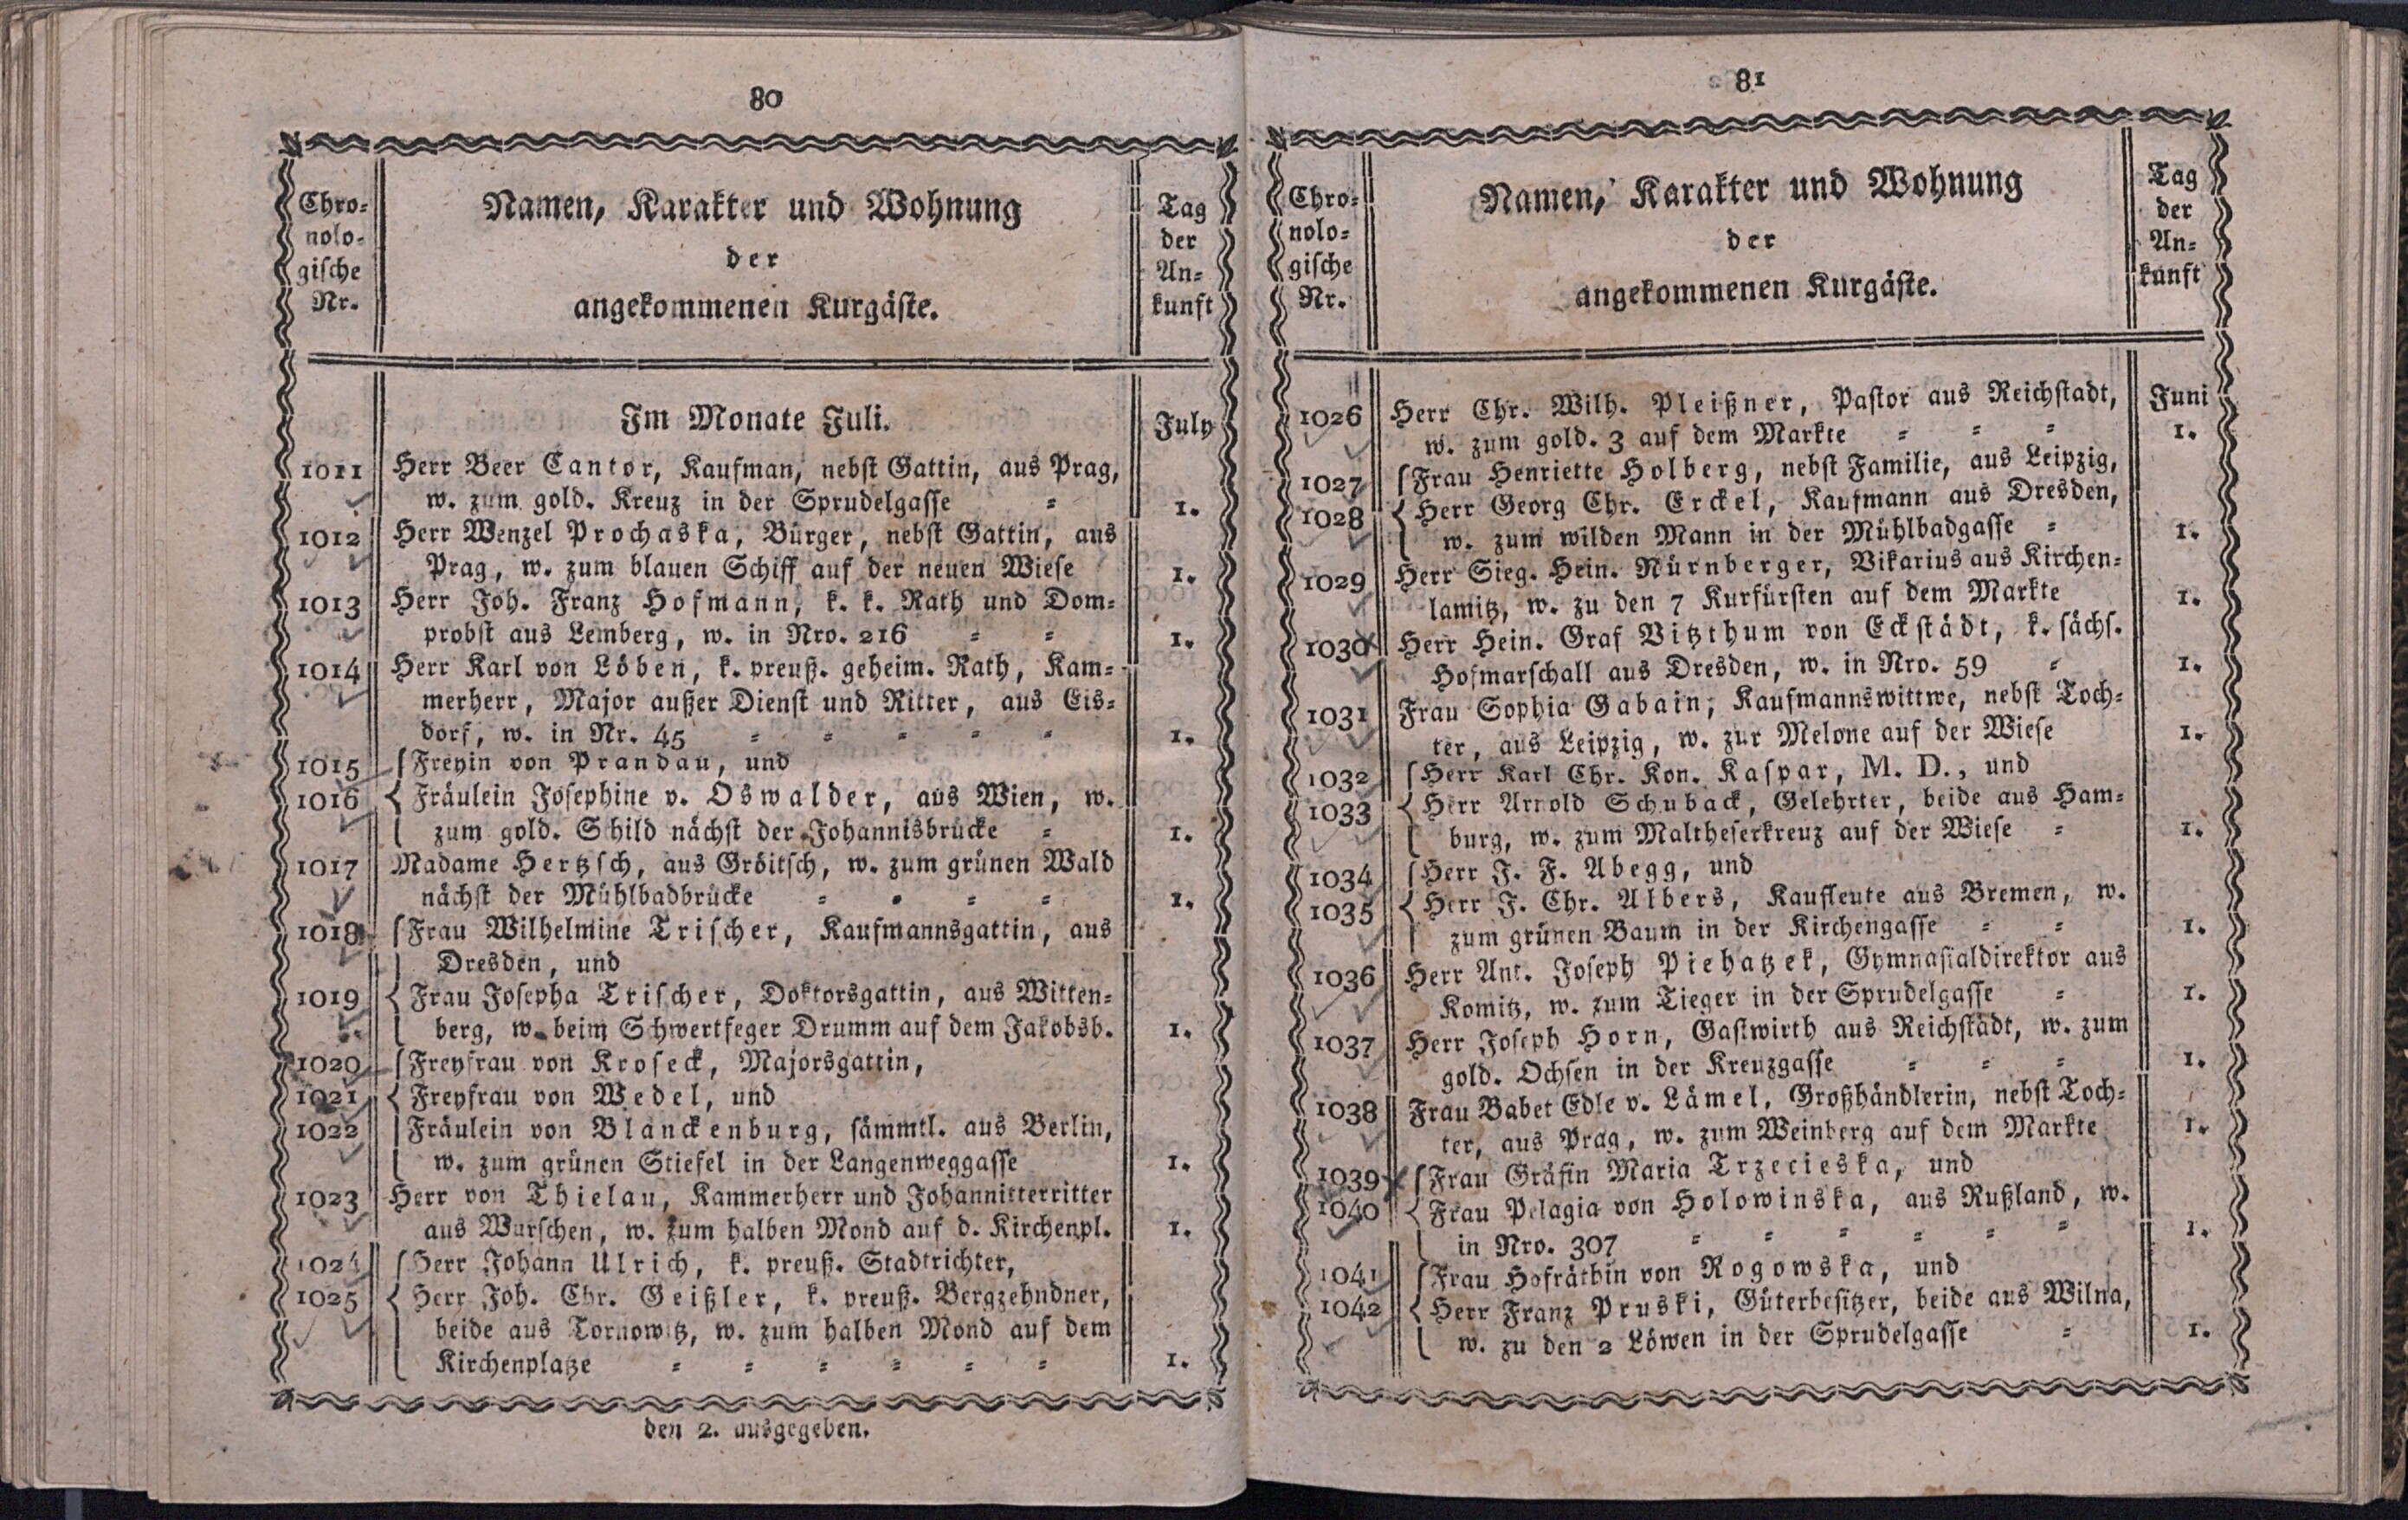 80
Chro-
nolo-
gische
Nr.
Namen, Karakter und Wohnung
der
angekommenen Kurgäste.
Tag
der
An-
kunft
Im Monate Juli.
July
1011 Herr Beer Cantor, Kaufman, nebst Gattin, aus Prag,
w. zum gold. Kreuz in der Sprudelgasse = 1.
1012 Herr Wenzel Prochaska, Bürger, nebst Gattin, aus
Prag, w. zum blauen Schiff auf der neuen Wiese 1.
1013 Herr Joh. Franz Hofmann, k. k. Rath und Dom-
probst aus Lemberg, w. in Nro. 216 = = 1.
1014 Herr Karl von Löben, k. preuß. geheim. Rath, Kam-
merherr, Major außer Dienst und Ritter, aus Eis-
dorf, w. in Nr. 45 = = = = = 1.
1015 Freyin von Prandau, und
1016 Fräulein Josephine v. Oswalder, aus Wien, w.
zum gold. Schild nächst der Johannisbrücke = 1.
1017 Madame Hertzsch, aus Gröitsch, w. zum grünen Wald
nächst der Mühlbadbrücke = = = = 1.
1018 Frau Wilhelmine Trischer, Kaufmannsgattin, aus
Dresden, und
1019 Frau Josepha Trischer, Doktorsgattin, aus Witten-
berg, w. beim Schwertfeger Drumm auf dem Jakobsb. 1.
1020 Freyfrau von Kroseck, Majorsgattin,
1021 Freyfrau von Wedel, und
1022 Fräulein von Blanckenburg, sämmtl. aus Berlin,
w. zum grünen Stiefel in der Langenweggasse 1.
1023 Herr von Thielau, Kammerherr und Johannitterritter
aus Wurschen, w. zum halben Mond auf d. Kirchenpl. 1.
1024 Herr Johann Ulrich, k. preuß. Stadtrichter,
1025 Herr Joh. Chr. Geißler, k. preuß. Bergzehndner,
beide aus Tornowitz, w. zum halben Mond auf dem
Kirchenplatze = = = = = = 1.
den 2. ausgegeben.
81
Chro-
nolo-
gische
Nr.
Namen, Karakter und Wohnung
der
angekommenen Kurgäste.
Tag
der
An-
kunft
1026 Herr Chr. Wilh. Pleißner, Pastor aus Reichstadt, Juni
w. zum gold. 3 auf dem Markte = = = 1.
1027 Frau Henriette Holberg, nebst Familie, aus Leipzig,
1028 Herr Georg Chr. Erckel, Kaufmann aus Dresden,
w. zum wilden Mann in der Mühlbadgasse = 1.
1029 Herr Sieg. Hein. Nürnberger, Vikarius aus Kirchen-
lamitz, w. zu den 7 Kurfürsten auf dem Markte 1.
1030 Herr Hein. Graf Vitzthum von Eckstädt, k. sächs.
Hofmarschall aus Dresden, w. in Nro. 59 = 1.
1031 Frau Sophia Gabain, Kaufmannswittwe, nebst Toch-
ter, aus Leipzig, w. zur Melone auf der Wiese 1.
1032 Herr Karl Chr. Kon. Kaspar, M. D., und
1033 Herr Arnold Schuback, Gelehrter, beide aus Ham-
burg, w. zum Maltheserkreuz auf der Wiese = 1.
1034 Herr J. F. Abegg, und
1035 Herr J. Chr. Albers, Kaufleute aus Bremen, w.
zum grünen Baum in der Kirchengasse = = 1.
1036 Herr Ant. Joseph Piehatzek, Gymnasialdirektor aus
Komitz, w. zum Tieger in der Sprudelgasse = 1.
1037 Herr Joseph Horn, Gastwirth aus Reichstädt, w. zum
gold. Ochsen in der Kreuzgasse = = = 1.
1038 Frau Babet Edle v. Lämel, Großhändlerin, nebst Toch-
ter, aus Prag, w. zum Weinberg auf dem Markte 1.
1039 Frau Gräfin Maria Trzecieska, und
1040 Frau Pelagia von Holowinska, aus Rußland, w.
in Nro. 307 = = = = = = 1.
1041 Frau Hofräthin von Rogowska, und
1042 Herr Franz Pruski, Güterbesitzer, beide aus Wilna,
w. zu den 2 Löwen in der Sprudelgasse = 1.